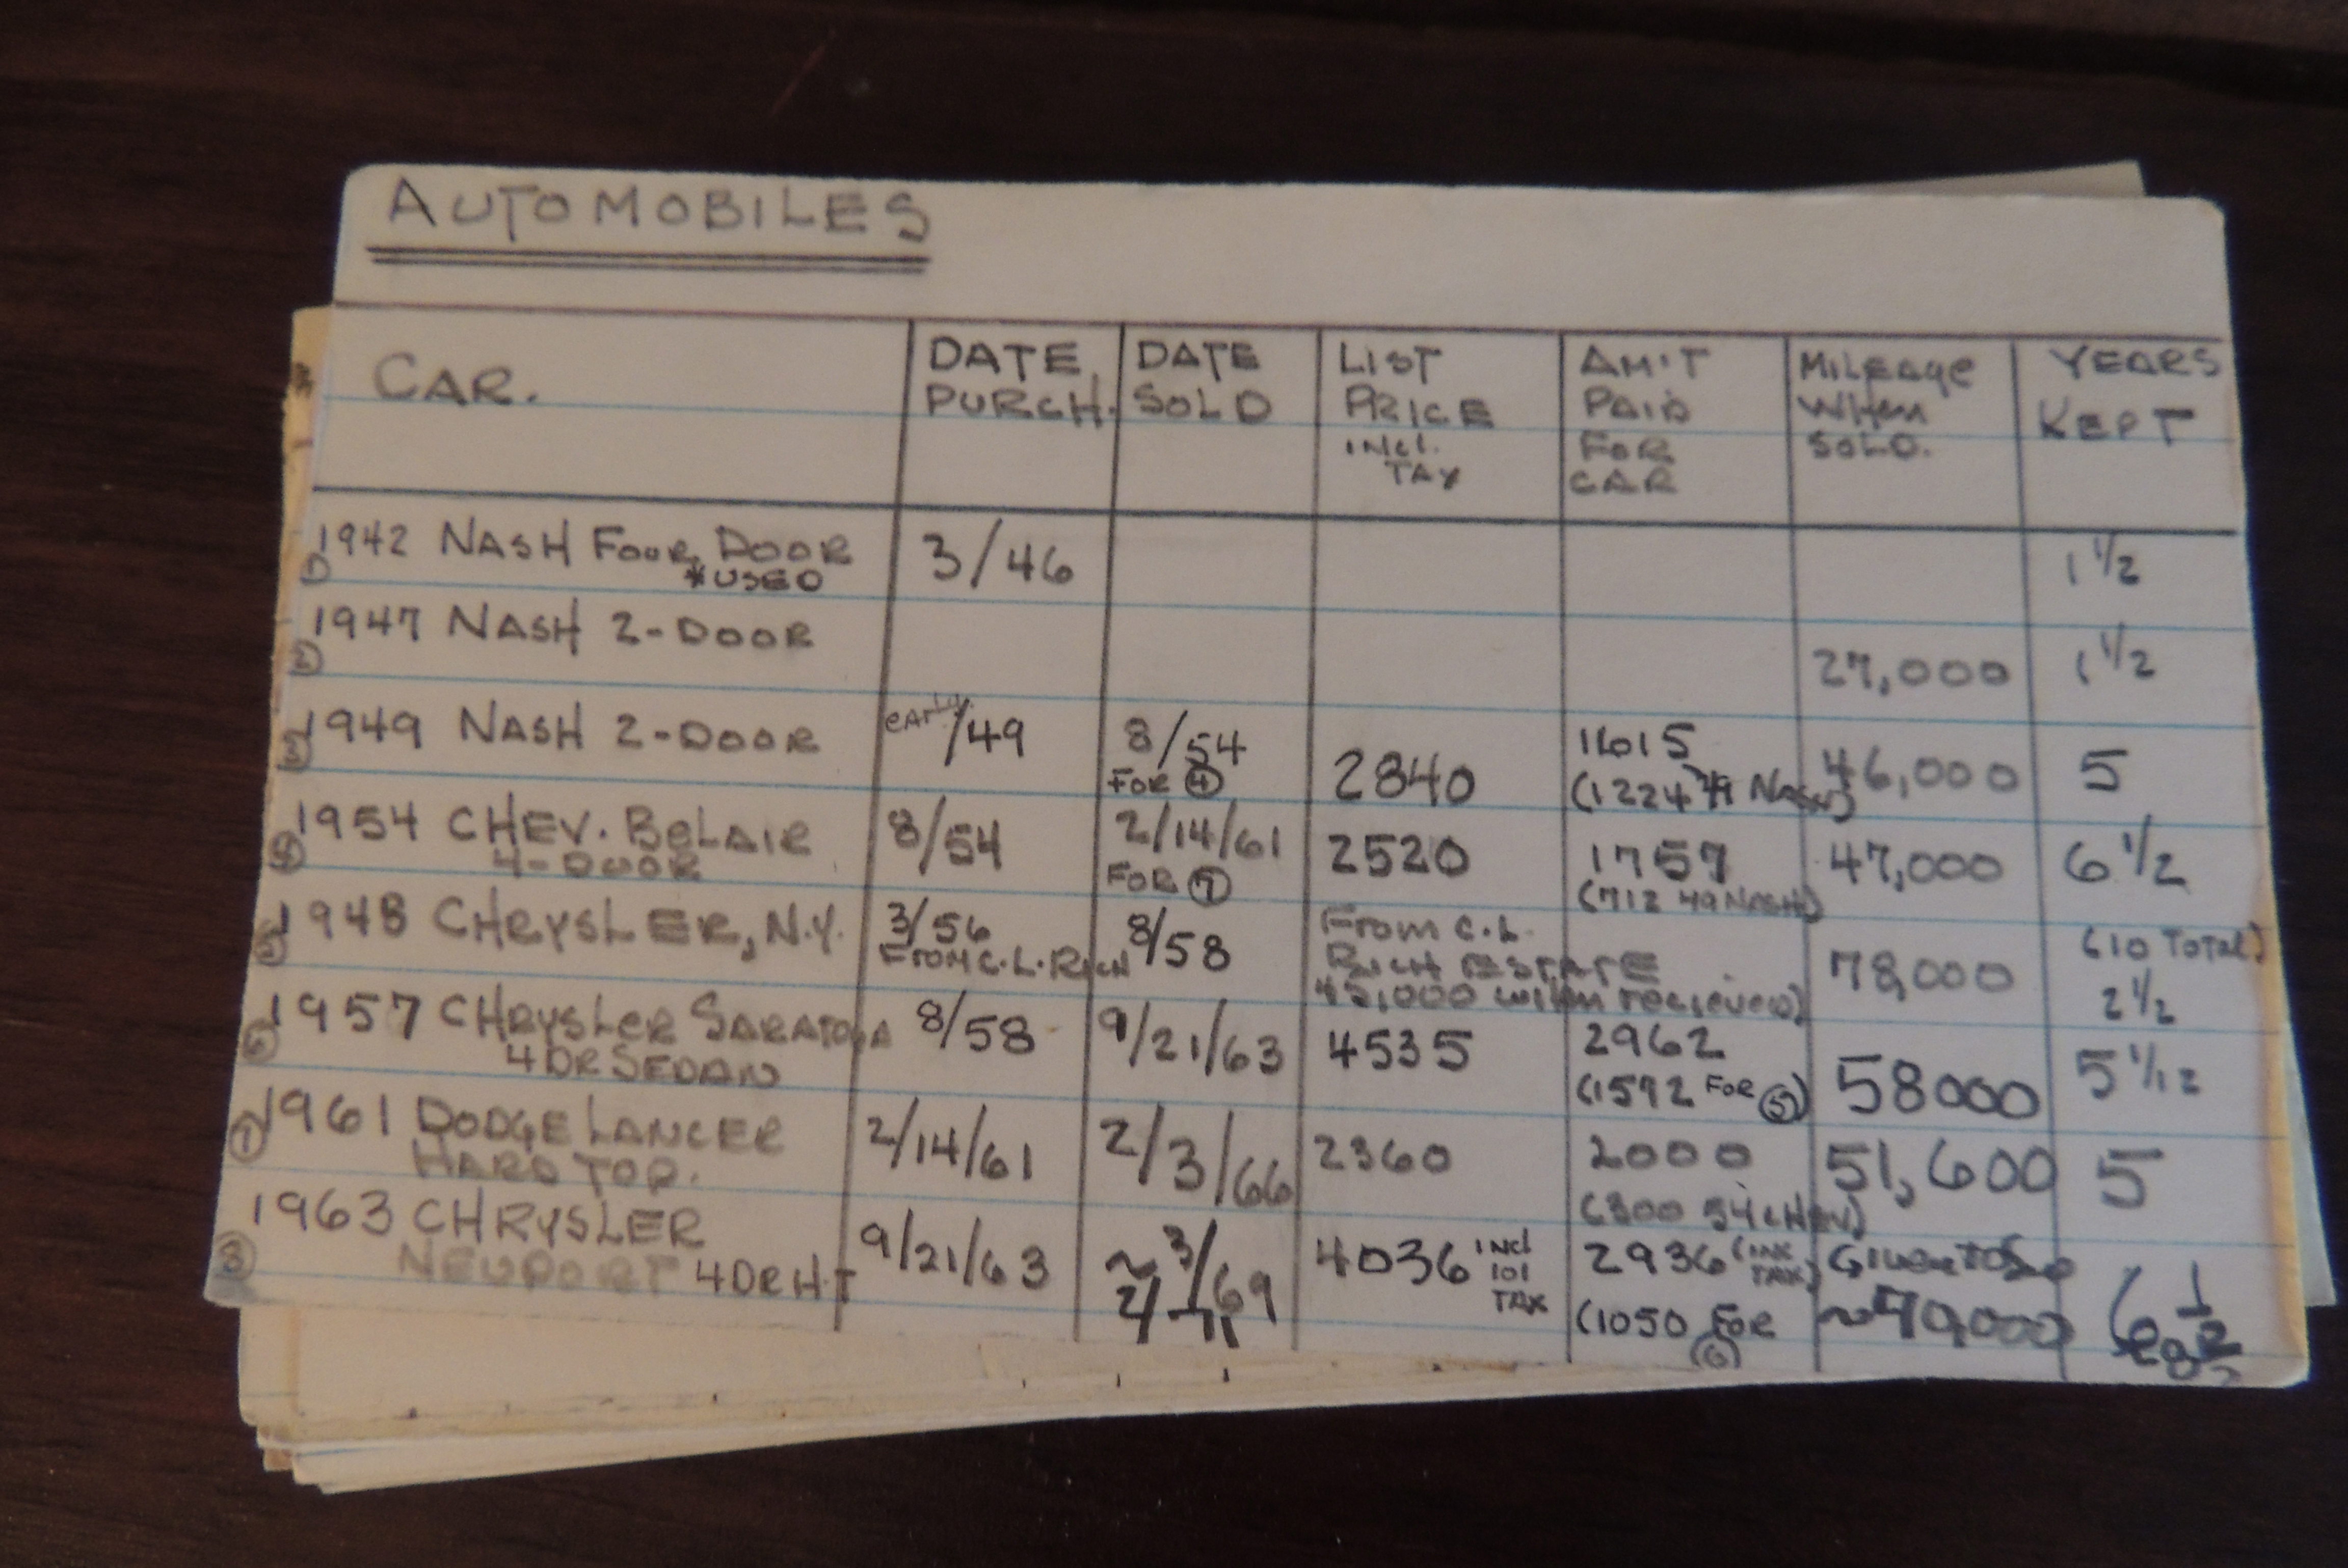 AUTOMOBILES
CAR. DATE PURCH. DATE SOLD LIST PRICE INCL. TAX AM'T PAID FOR CAR MILEAGE WHEN SOLD. YEARS KEPT
① 1942 NASH FOUR DOOR 3/46 1 1/2
*USED
② 1947 NASH 2-DOOR 27,000 1 1/2
③ 1949 NASH 2-DOOR EARLY/49 8/54 2840 1615 46,000 5
FOR ④ (1224 NASH)
④ 1954 CHEV. BELAIR 8/54 2/14/61 2520 1757 47,000 6 1/2
4-DOOR FOR ⑦ (712 49 NASH)
⑤ 1948 CHRYSLER, N.Y. 3/56 8/58 FROM C.L. 78,000 (10 TOTAL)
FROM C.L. RICH RICH ESTATE 2 1/2
WHEN RECIEVED)
⑥ 1957 CHRYSLER SARATOGA 8/58 9/21/63 4535 2962 58000 5 1/12
4 DR SEDAN (1592 FOR ⑤)
⑦ 1961 DODGE LANCER 2/14/61 2/3/66 2360 2000 51,600 5
HARD TOP. (300 54 CHEV)
⑧ 1963 CHRYSLER 9/21/63 ~3/69 4036 INCL 101 TAX 2936 (INC TAX) GIVEN TO
NEWPORT 4 DR H.T (1050 FOR ⑥) 6 1/2